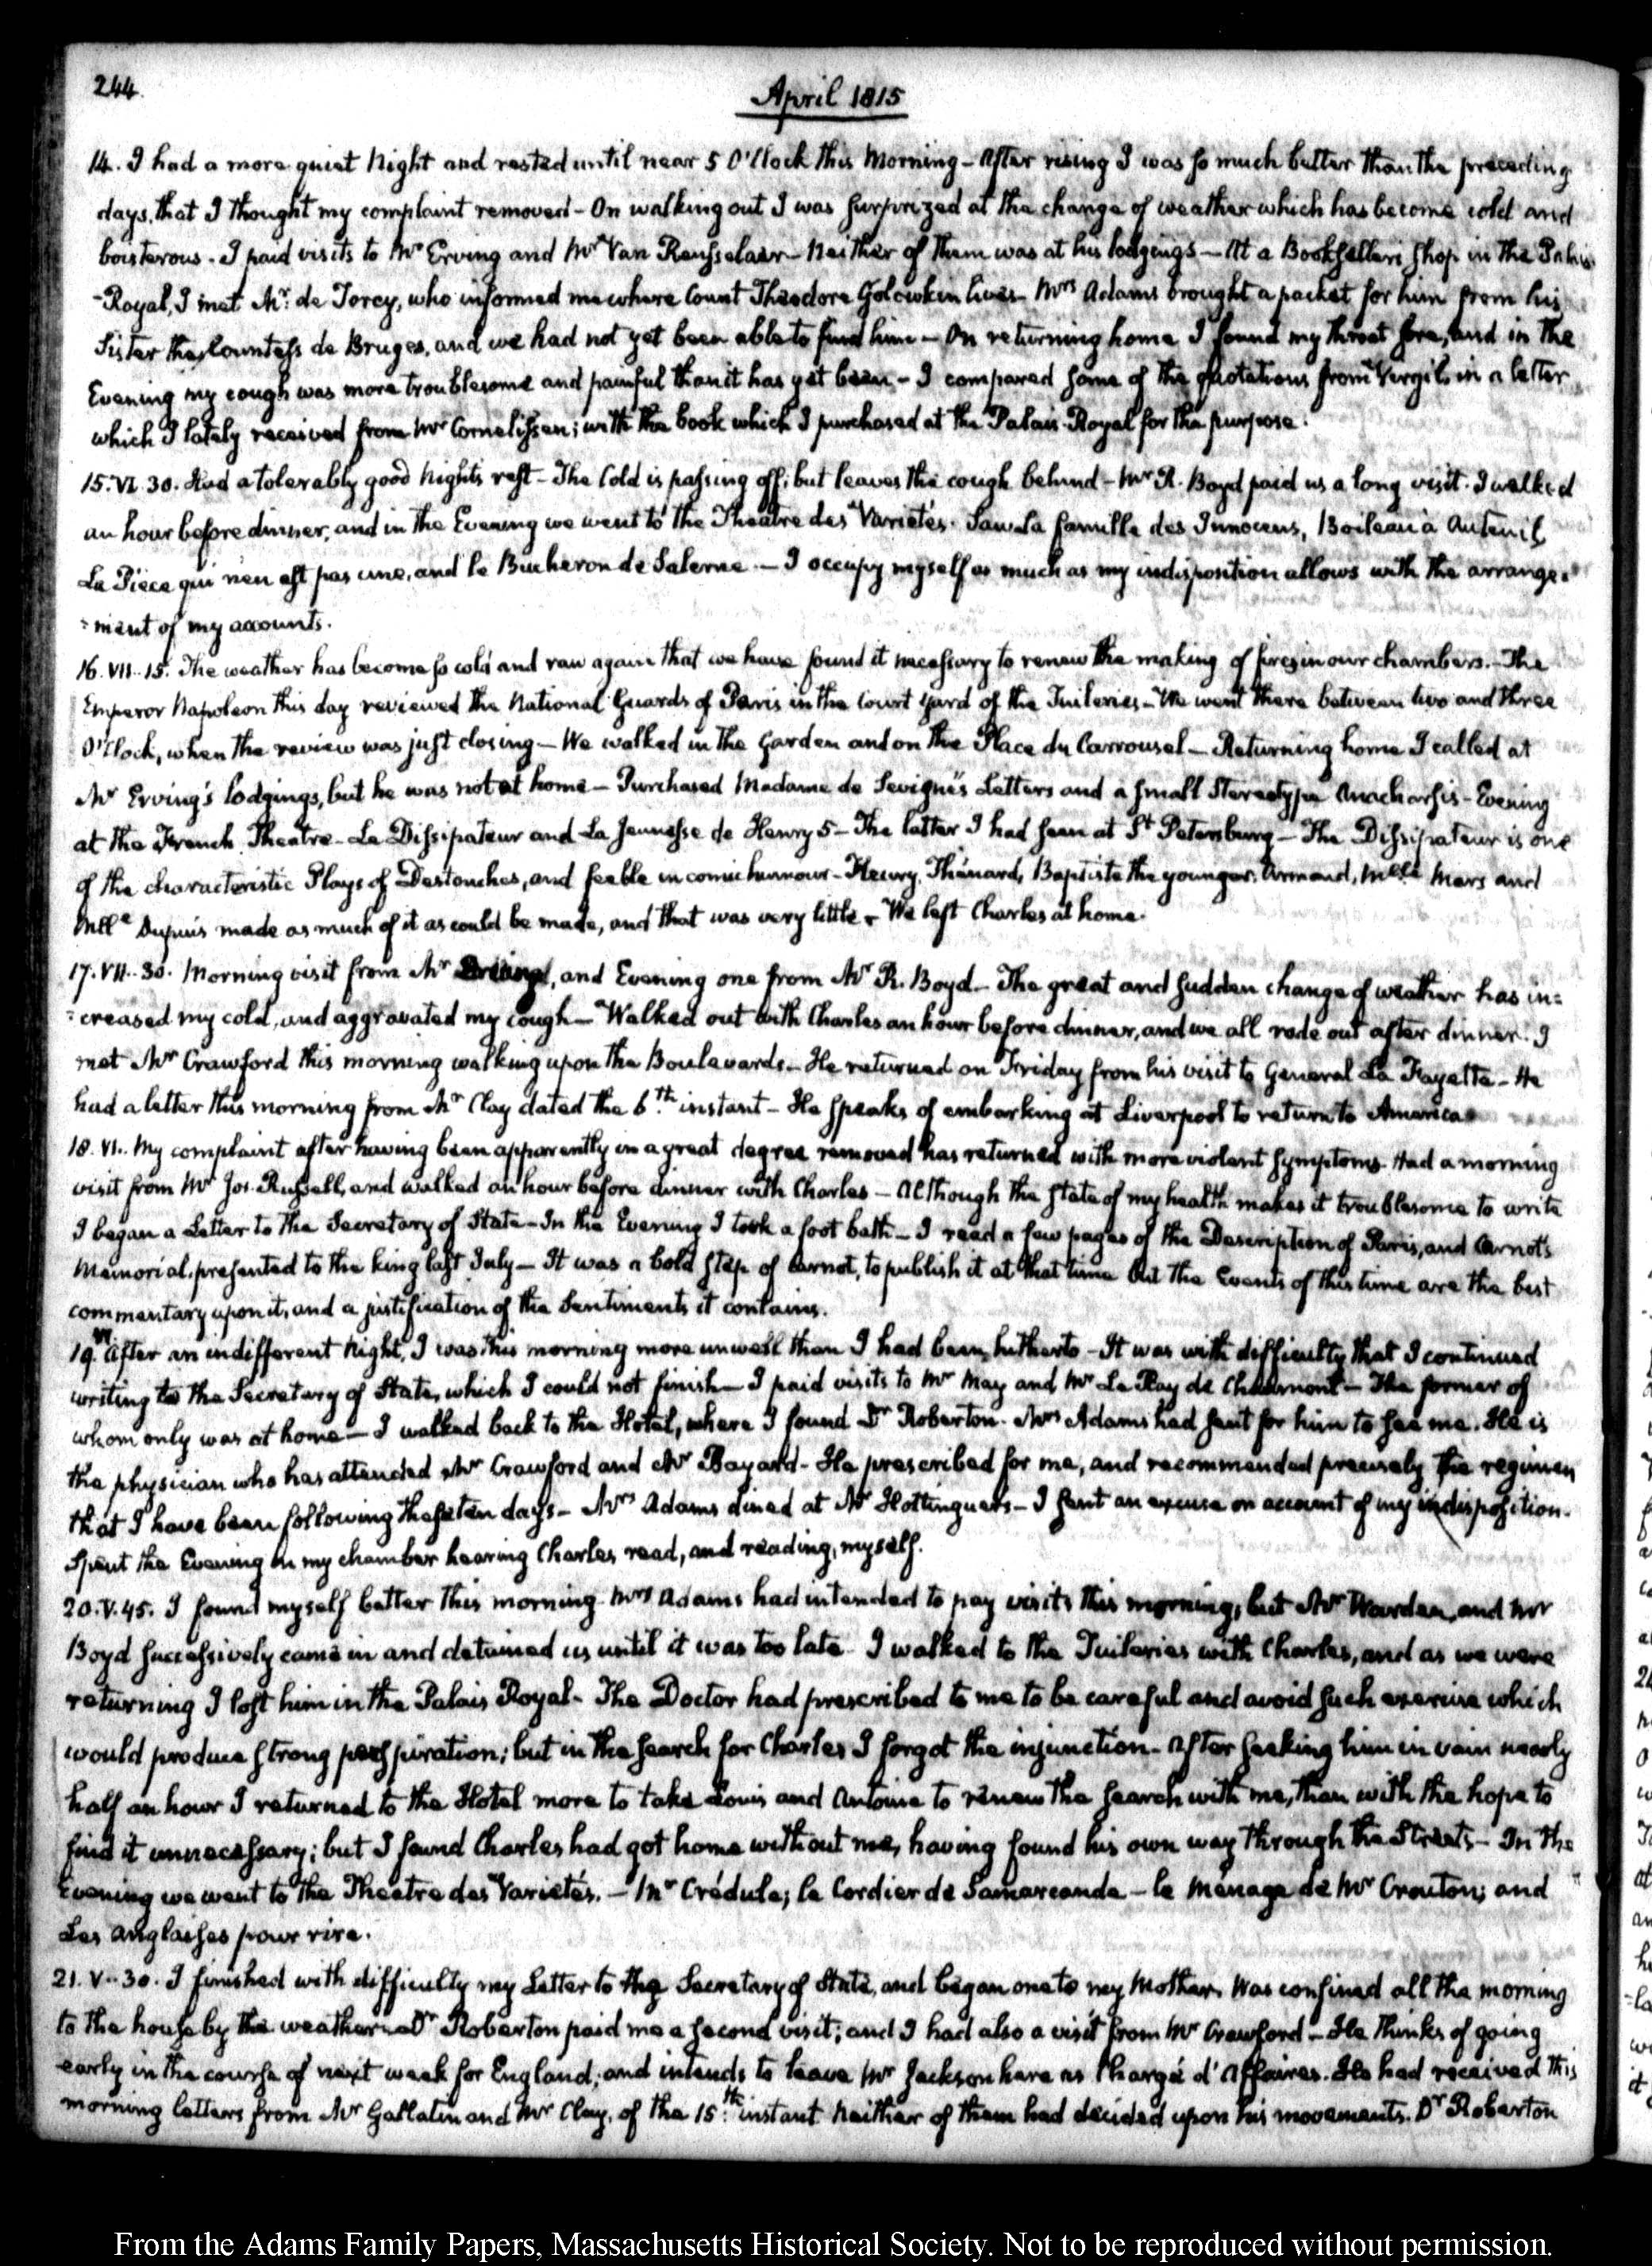 244.
April 1815
14. I had a more quiet Night and rested until near 5 O'Clock this Morning - After rising I was so much better than the preceding
days, that I thought my complaint removed - On walking out I was surprized at the change of weather which has become cold and
boisterous. I paid visits to Mr Erving and Mr Van Rensselaer - Neither of them was at his lodgings - At a Bookseller's shop in the Palais
-Royal, I met Mr. de Torcy, who informed me where Count Theodore Golowkin lives - Mrs Adams brought a packet for him from his
Sister the Countess de Bruges, and we had not yet been able to find him - On returning home I found my throat sore, and in the
Evening my cough was more troublesome and painful than it has yet been - I compared some of the quotations from Virgil, in a letter
which I lately received from Mr Cornelissen; with the book which I purchased at the Palais-Royal for the purpose.
15. VI. 30. Had a tolerably good Night's rest - The Cold is passing off; but leaves the cough behind - Mr R. Boyd paid us a long visit. I walked
an hour before dinner, and in the Evening we went to the Theatre des Varietés. Saw La famille des Innocens, Boileau à Auteuil
La Piece qui n'en est pas une, and le Bucheron de Salerne. - I occupy myself as much as my indisposition allows with the arrange=
=ment of my accounts.
16. VII. 15. The weather has become so cold and raw again that we have found it necessary to renew the making of fires in our chambers. - The
Emperor Napoleon this day reviewed the National Guards of Paris in the Court yard of the Tuileries - We went there between two and three
O'Clock, when the review was just closing - We walked in the Garden and on the Place du Carrousel - Returning home I called at
Mr Erving's lodgings, but he was not at home - Purchased Madame de Sevigné's Letters and a small Stereotype Anacharsis - Evening
at the French Theatre - Le Dissipateur and La Jeunesse de Henry 5 - The latter I had seen at St Petersburg - The Dissipateur is one
of the characteristic Plays of Destouches, and feeble in comic humour - Fleury, Thénard, Baptiste the younger, Armand, Mlle Mars and
Mlle Dupuis made as much of it as could be made, and that was very little - We left Charles at home.
17. VII. 30. Morning visit from Mr Erving, and Evening one from Mr R. Boyd - The great and sudden change of weather has in=
=creased my cold, and aggravated my cough - Walked out with Charles an hour before dinner, and we all rode out after dinner. I
met Mr Crawford this morning walking upon the Boulevards - He returned on Friday from his visit to General La Fayette - He
had a letter this morning from Mr Clay dated the 6th instant - He speaks of embarking at Liverpool to return to America
18. VI. My complaint after having been apparently in a great degree removed has returned with more violent symptoms. Had a morning
visit from Mr Jos. Russell, and walked an hour before dinner with Charles - Although the state of my health makes it troublesome to write
I began a Letter to the Secretary of State - In the Evening I took a foot bath - I read a few pages of the Description of Paris, and Carnot's
Memorial, presented to the king last July - It was a bold step of Carnot, to publish it at that time but the Events of this time are the best
commentary upon it, and a justification of the Sentiments it contains.
19. VI. After an indifferent Night, I was this morning more unwell than I had been hitherto - It was with difficulty that I continued
writing to the Secretary of State, which I could not finish - I paid visits to Mr May and Mr Le Ray de Chaumont - The former of
whom only was at home - I walked back to the Hotel, where I found Dr Roberton. Mrs Adams had sent for him to see me. He is
the physician who has attended Mr Crawford and Mr Bayard - He prescribed for me, and recommended precisely the regimen
that I have been following these ten days - Mrs Adams dined at Mr Hottinguer's - I sent an excuse on account of my indisposition.
Spent the Evening in my chamber hearing Charles read, and reading, myself.
20. V. 45. I found myself better this morning. Mrs Adams had intended to pay visits this morning, but Mr Warden, and Mr
Boyd successively came in and detained us until it was too late. I walked to the Tuileries with Charles, and as we were
returning I lost him in the Palais Royal - The Doctor had prescribed to me to be careful and avoid such exercise which
would produce strong perspiration; but in the search for Charles I forgot the injunction - After seeking him in vain nearly
half an hour I returned to the Hotel more to take Louis and Antoine to renew the search with me, than with the hope to
find it unnecessary; but I found Charles had got home without me, having found his own way through the Streets - In the
Evening we went to the Theatre des Varietés. - Mr Crédule; le Cordier de Samarcande - le Menage de Mr Crouton; and
Les Anglaises pour rire.
21. V. 30. I finished with difficulty my Letter to the Secretary of State, and began one to my Mother. Was confined all the morning
to the house by the weather. Dr Roberton paid me a second visit; and I had also a visit from Mr Crawford - He thinks of going
early in the course of next week for England; and intends to leave Mr Jackson here as Chargé d'Affaires. He had received this
morning letters from Mr Gallatin and Mr Clay, of the 15th instant. Neither of them had decided upon his movements. Dr Roberton
From the Adams Family Papers, Massachusetts Historical Society. Not to be reproduced without permission.